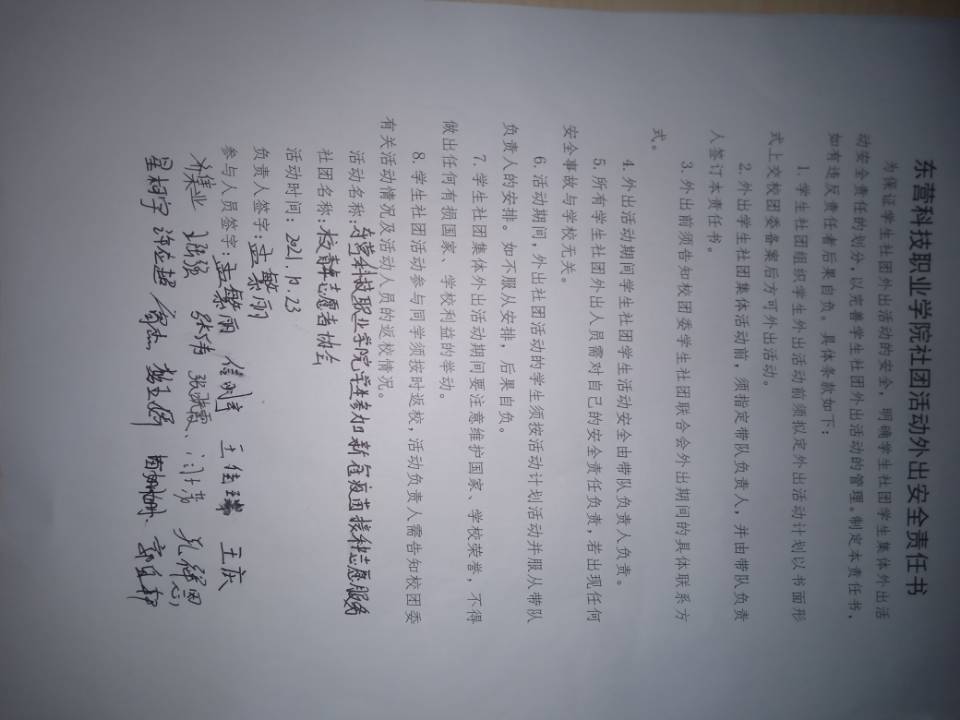 东营科技职业学院社团活动外出安全责任书
为保证学生社团外出活动的安全，明确学生社团学生集体外出活
动安全责任的划分，以完善学生社团外出活动的管理。制定本责任书，
如有违反责任者后果自负。具体条款如下：
1. 学生社团组织学生外出活动前须拟定外出活动计划以书面形
式上交校团委备案后方可外出活动。
2. 外出学生社团集体活动前，须指定带队负责人，并由带队负责
人签订本责任书。
3. 外出前须告知校团委学生社团联合会外出期间的具体联系方
式。
4. 外出活动期间学生社团学生活动安全由带队负责人负责。
5. 所有学生社团外出人员需对自己的安全责任负责，若出现任何
安全事故与学校无关。
6. 活动期间，外出社团活动的学生须按活动计划活动并服从带队
负责人的安排。如不服从安排，后果自负。
7. 学生社团集体外出活动期间要注意维护国家、学校荣誉，不得
做出任何有损国家、学校利益的举动。
8. 学生社团活动参与同学须按时返校，活动负责人需告知校团委
有关活动情况及活动人员的返校情况。
活动名称：东营科技职业学院学生参加新冠疫苗接种志愿服务
社团名称：校青年志愿者协会
活动时间：2021.10.23
负责人签字：孟繁雨
参与人员签字：孟繁雨 信明宇 王佳瑞 王庆
张强 张涛 张晓霞